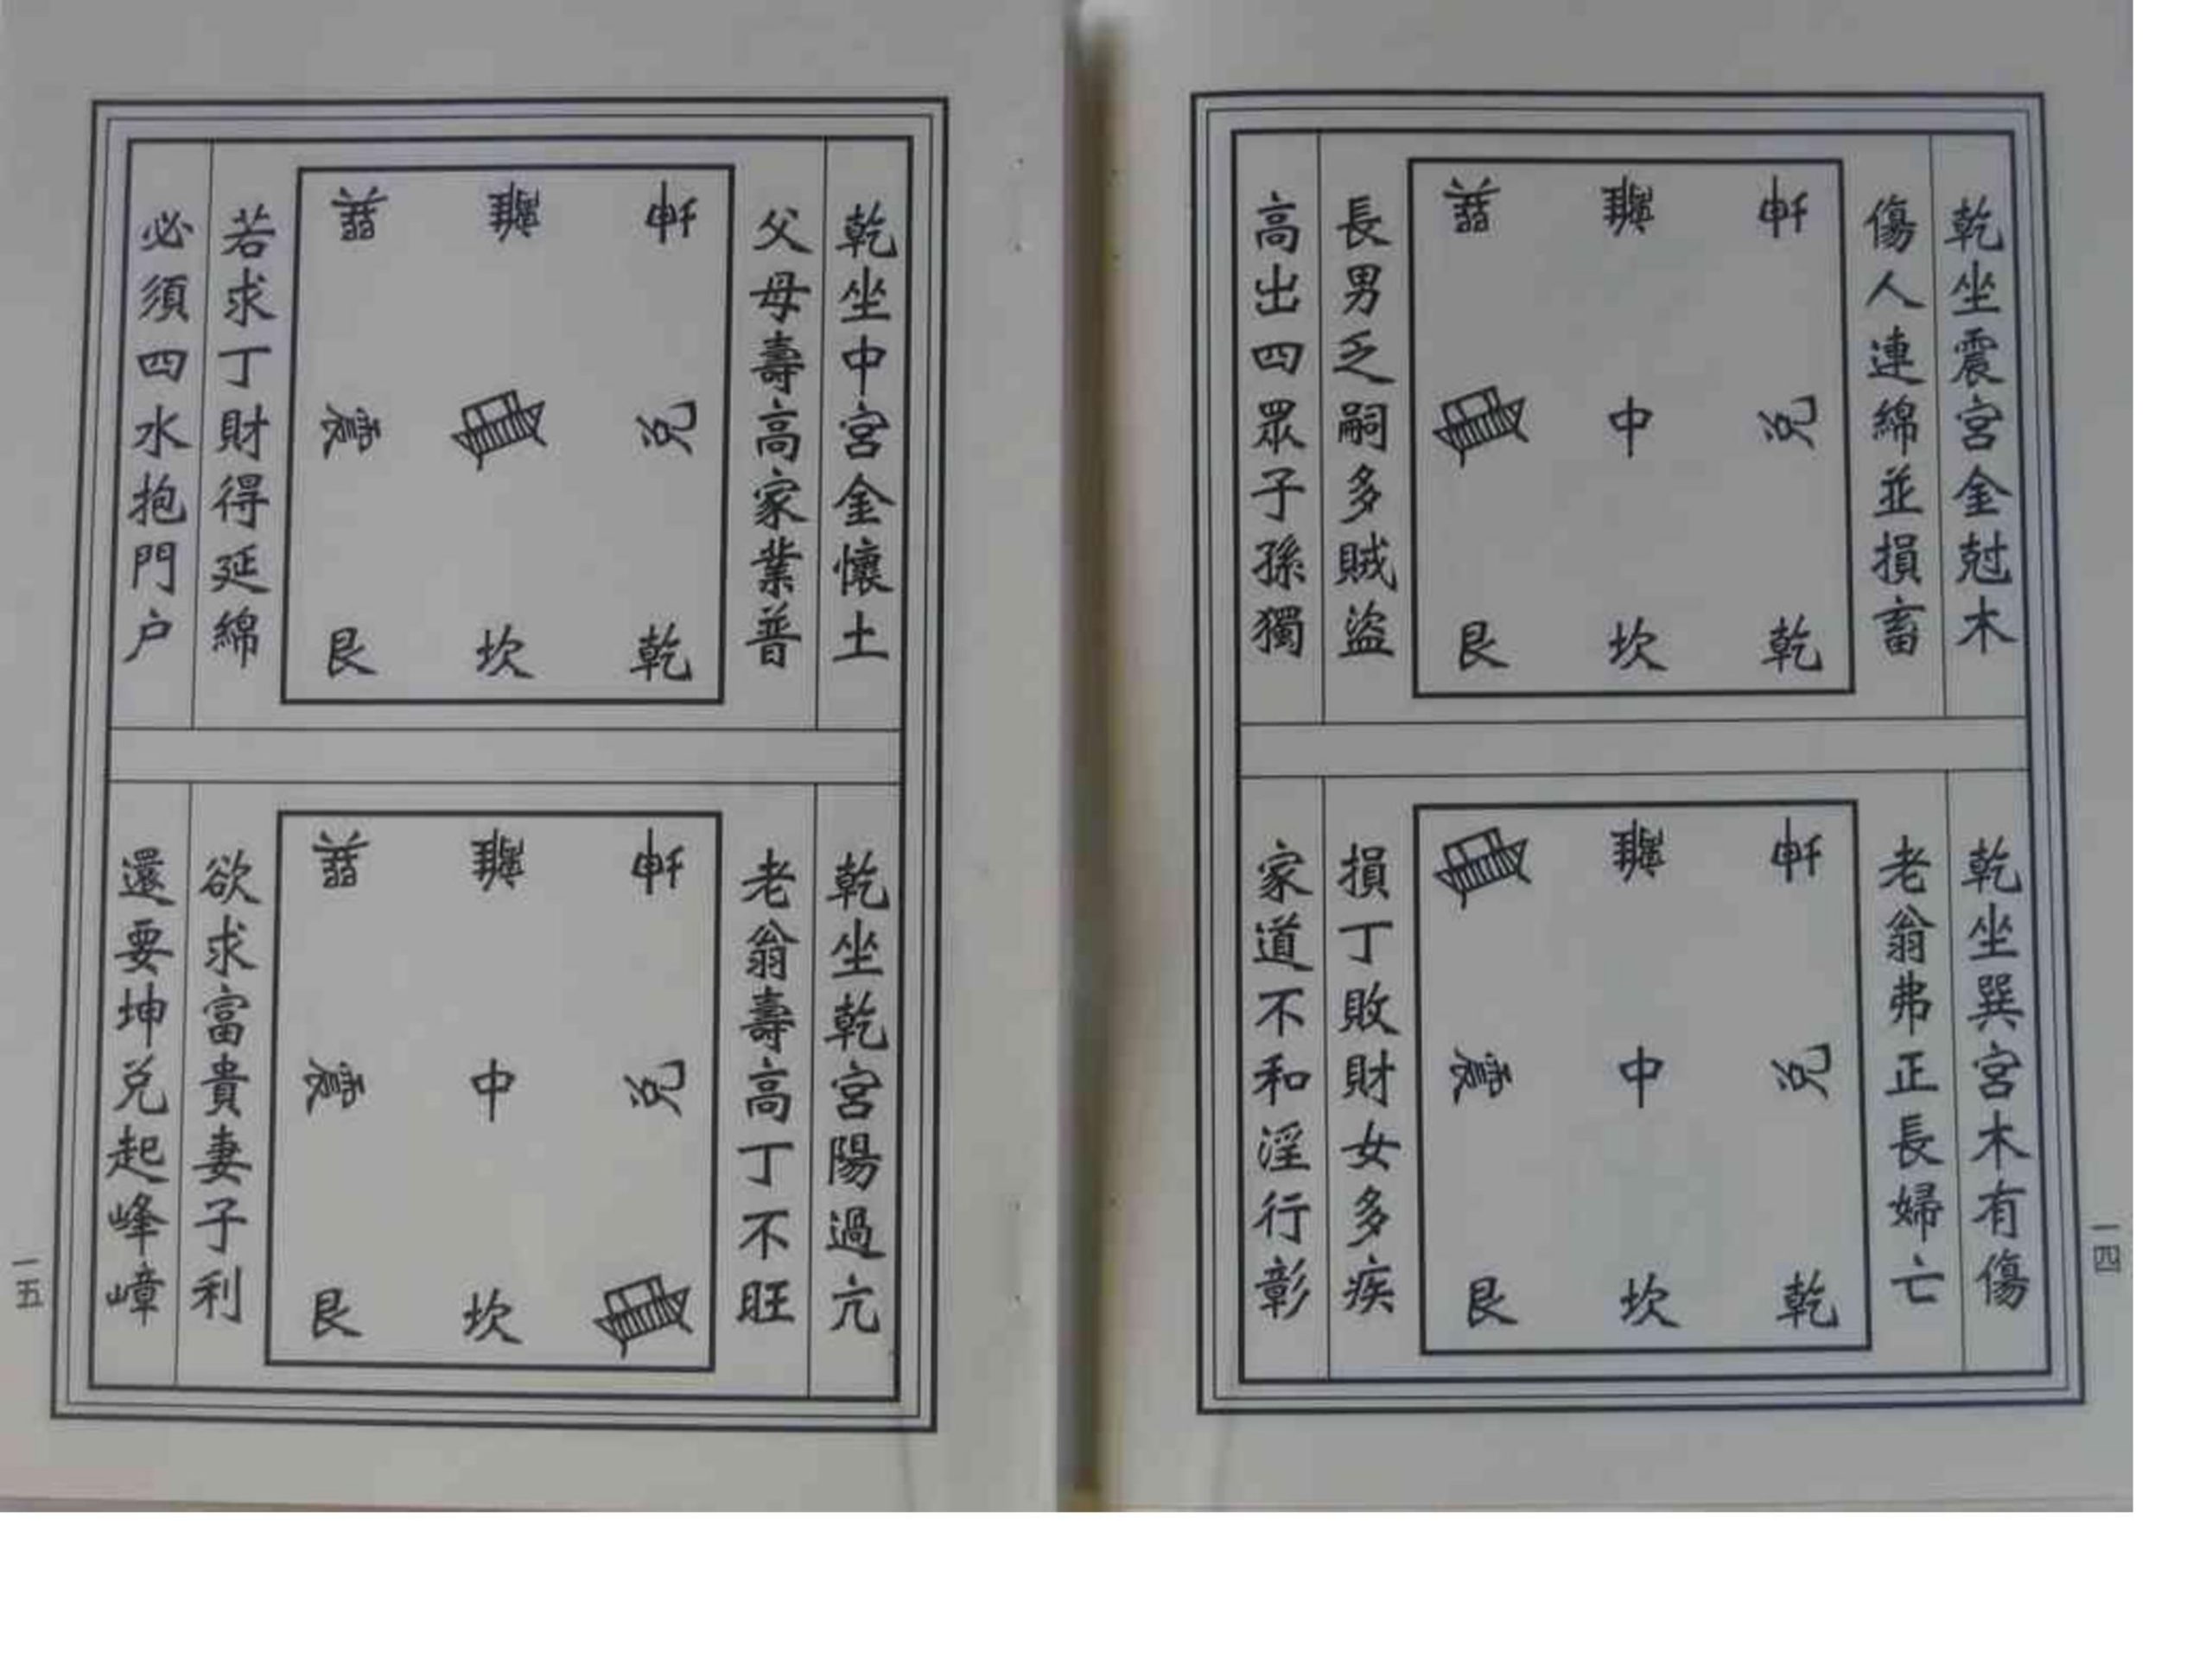 乾坐震宮金尅木
傷人連綿並損畜
巽 離 坤
中 兑
艮 坎 乾
長男乏嗣多賊盜
高出四眾子孫獨
乾坐巽宮木有傷
老翁弗正長婦亡
離 坤
震 中 兑
艮 坎 乾
損丁敗財女多疾
家道不和淫行彰
一四
乾坐中宮金懷土
父母壽高家業普
巽 離 坤
震 兑
艮 坎 乾
若求丁財得延綿
必須四水抱門户
乾坐乾宮陽過亢
老翁壽高丁不旺
巽 離 坤
震 中 兑
艮 坎
欲求富貴妻子利
還要坤兑起峰嶂
一五